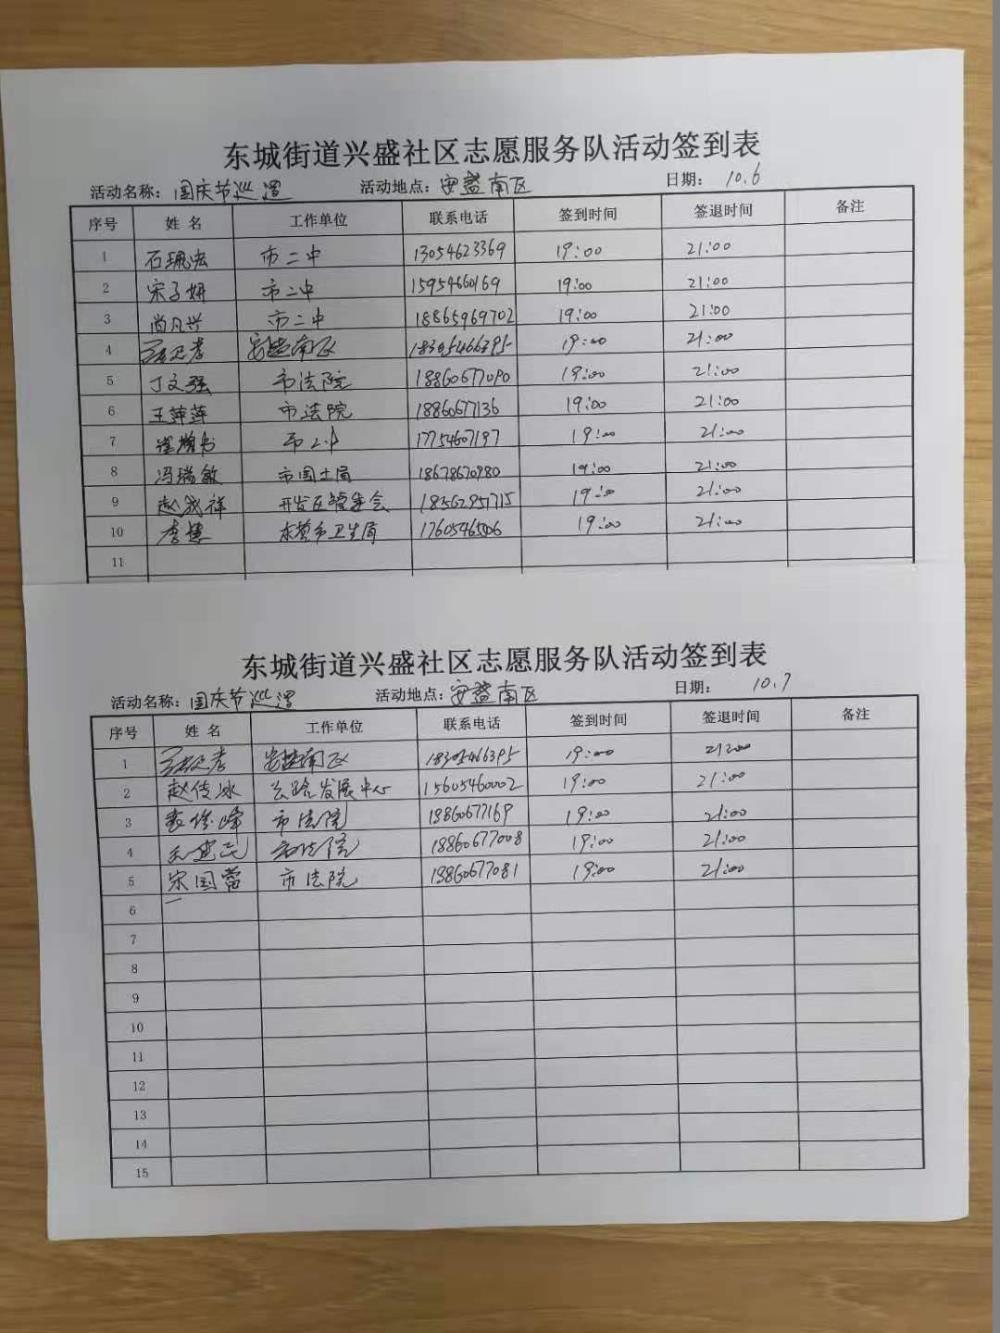 东城街道兴盛社区志愿服务队活动签到表
活动名称: 国庆节巡逻 活动地点: 安盛南区 日期: 10.6
序号 姓名 工作单位 联系电话 签到时间 签退时间 备注
1 石珮宏 市二中 13054623369 19:00 21:00
2 宋子妍 市二中 15954660169 19:00 21:00
3 尚凡兴 市二中 18865969702 19:00 21:00
4 安盛南区 18305466395 19:00 21:00
5 丁文强 市法院 18860677090 19:00 21:00
6 王萍萍 市法院 18860677136 19:00 21:00
7 市二中 17754607197 19:00 21:00
8 冯瑞敏 市国土局 18678670980 19:00 21:00
9 赵成祥 开发区管委会 18562951715 19:00 21:00
10 李慧 东营市卫生局 1760546506 19:00 21:00
11
东城街道兴盛社区志愿服务队活动签到表
活动名称: 国庆节巡逻 活动地点: 安盛南区 日期: 10.7
序号 姓名 工作单位 联系电话 签到时间 签退时间 备注
1 安盛南区 18305466395 19:00 21:00
2 赵传冰 公路发展中心 15605460002 19:00 21:00
3 市法院 18860677169 19:00 21:00
4 市法院 18860677008 19:00 21:00
5 宋国蕾 市法院 18860677081 19:00 21:00
6
7
8
9
10
11
12
13
14
15